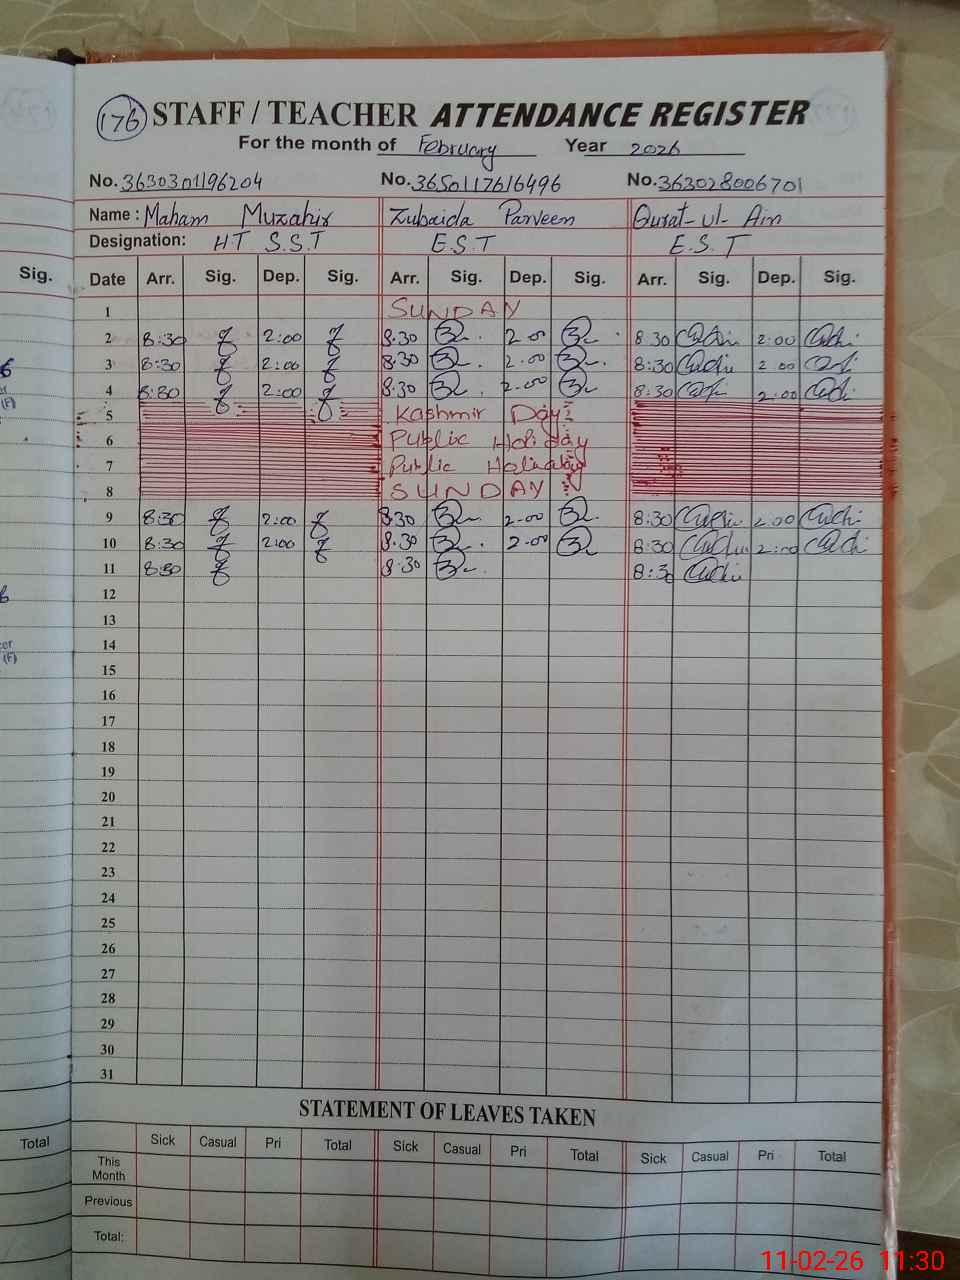 176 STAFF / TEACHER ATTENDANCE REGISTER
For the month of February Year 2026
No. 3630301196204 No. 3650117616496 No. 363028006701
Name : Maham Muzahir Zubaida Parveen Qurat-ul-Ain
Designation: H.T S.S.T E.S.T E.S.T
Sig.
Date Arr. Sig. Dep. Sig. Arr. Sig. Dep. Sig. Arr. Sig. Dep. Sig.
1 SUNDAY
2 8:30 2:00 8.30 2.00 8 30 2:00
3 8:30 2:00 8.30 2.00 8:30 2 00
4 8:30 2:00 8.30 2.00 8:30 2:00
5 Kashmir Day
6 Public Holiday
7 Public Holiday
8 SUNDAY
9 8:30 2:00 8.30 2.00 8:30 2.00
10 8:30 2:00 8.30 2.00 8:30 2:00
11 8:30 8.30 8:30
12
13
14
15
16
17
18
19
20
21
22
23
24
25
26
27
28
29
30
31
STATEMENT OF LEAVES TAKEN
Total
Sick Casual Pri Total Sick Casual Pri Total Sick Casual Pri Total
This Month
Previous
Total:
11-02-26 11:30